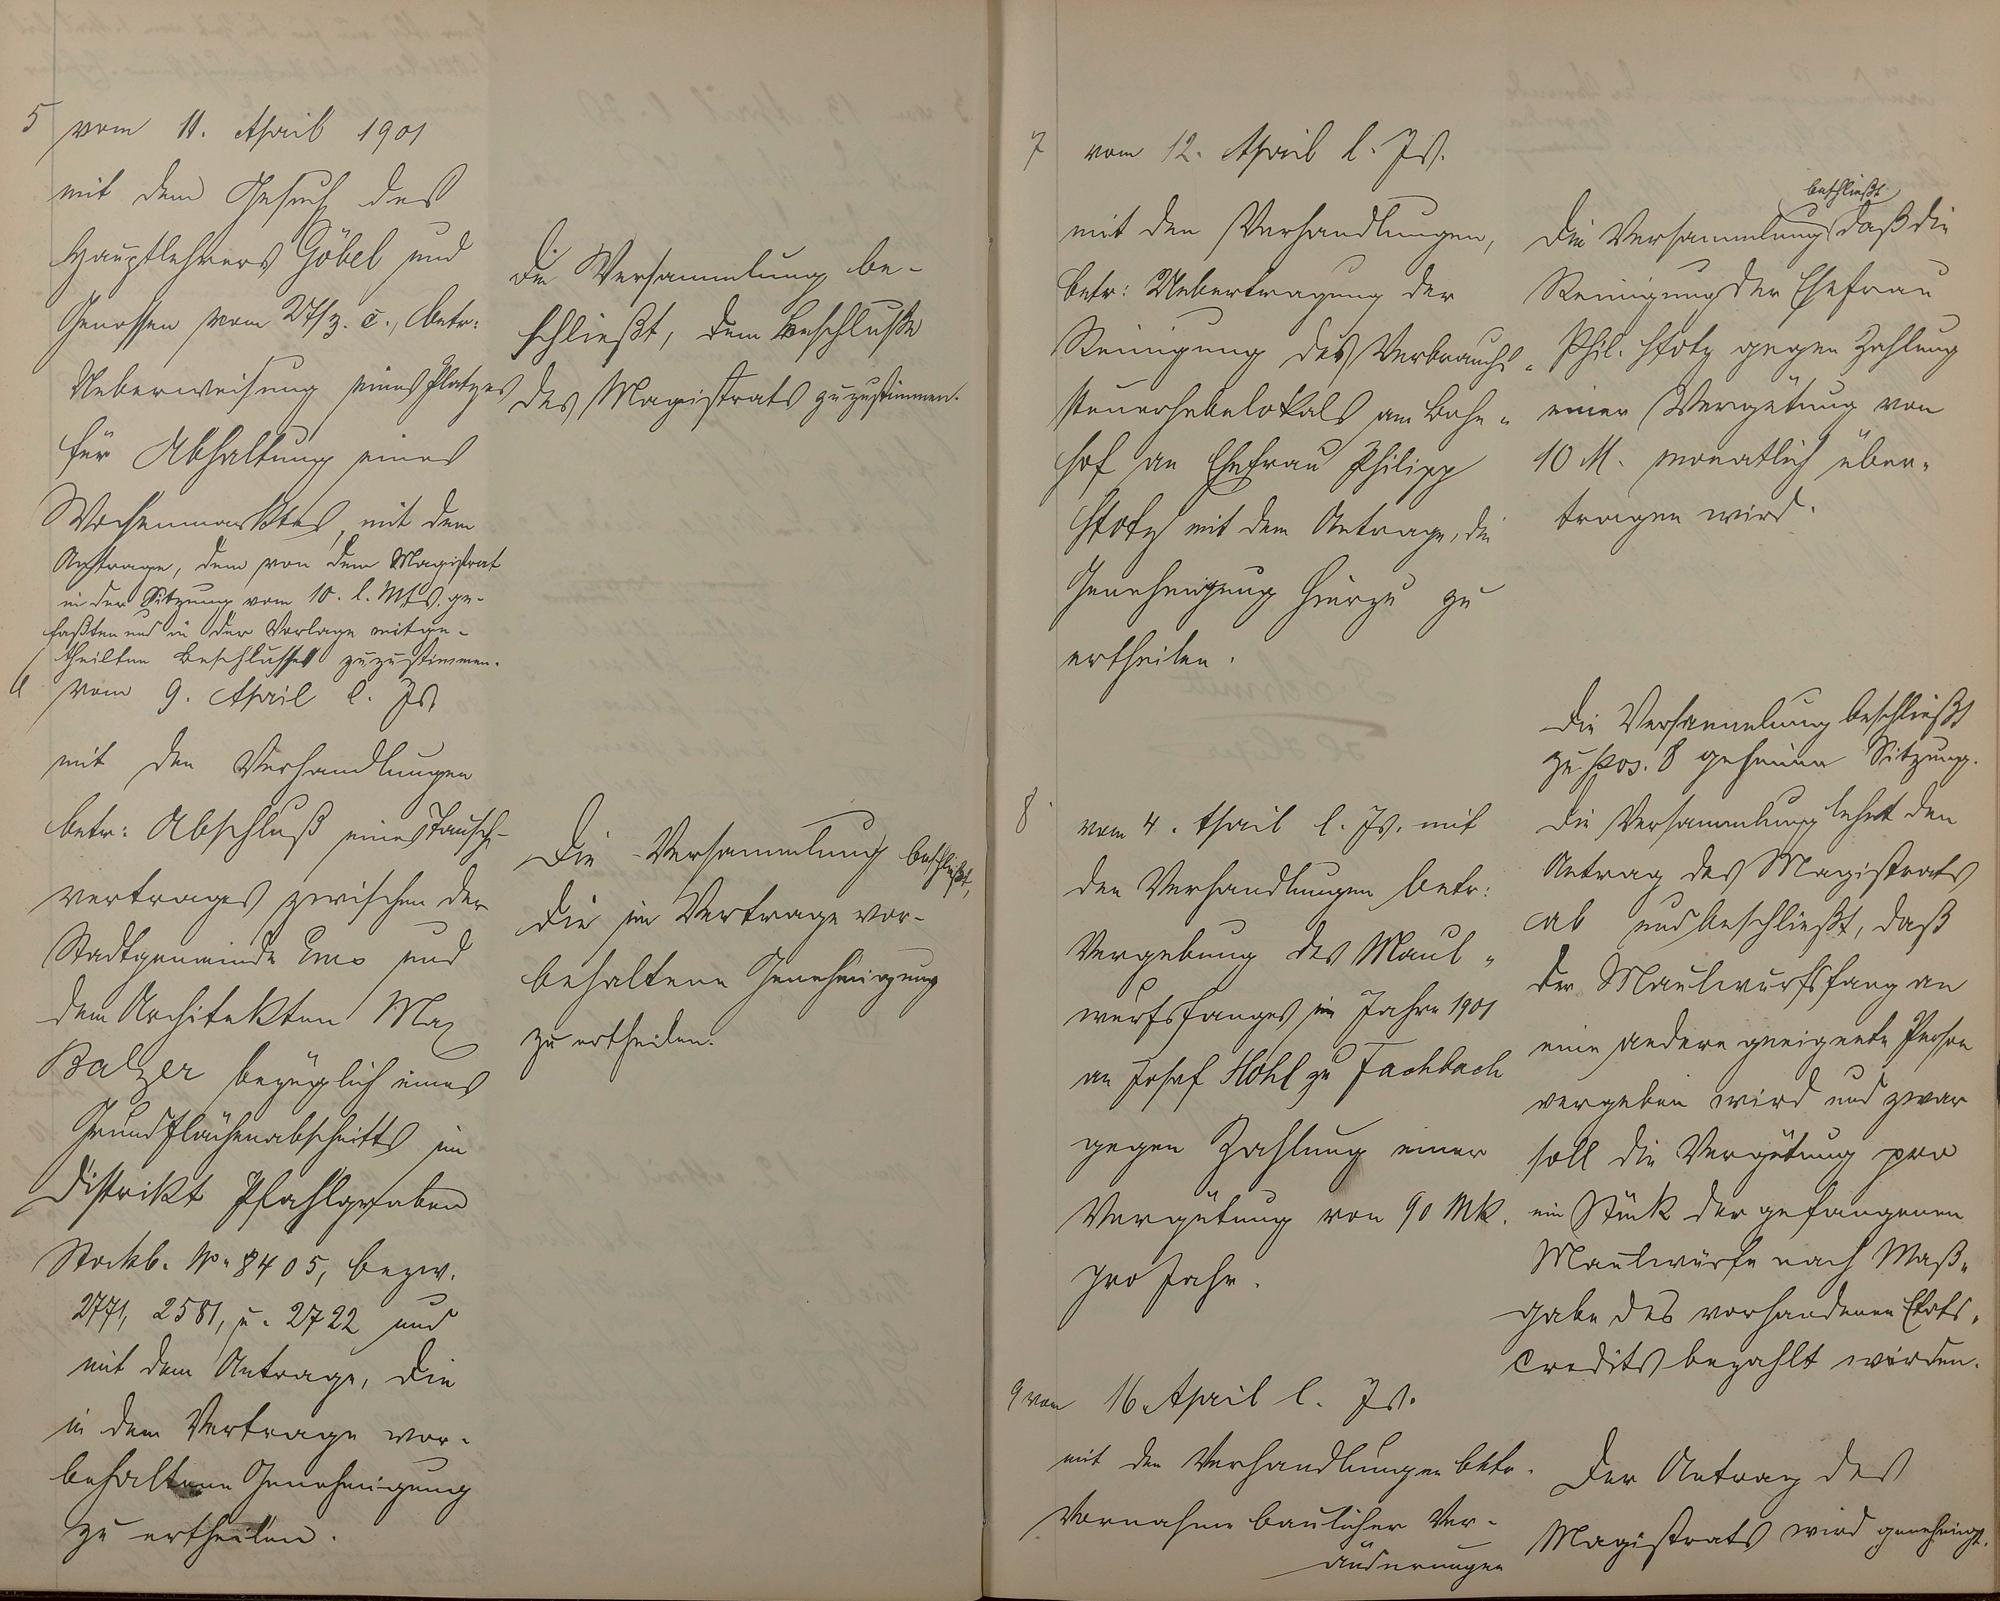 5 vom 11. April 1901
mit dem Gesuch des
Hauptlehrers Göbel und
Genossen vom 27/3. c., betr:
Ueberweisung eines Platzes
für Abhaltung eines
Wochenmarktes, mit dem
Antrage, dem von dem Magistrat
in der Sitzung vom 10. l. Mts. ge-
faßten und in der Vorlage mitge-
theilten Beschlusse zuzustimmen.
Die Versammlung be-
schließt, dem Beschlusse
des Magistrats zuzustimmen.
6 vom 9. April l. Js.
mit den Verhandlungen
betr: Abschluß eines Tausch-
vertrages zwischen der
Stadtgemeinde Ems und
dem Architekten Max
Balzer bezüglich eines
Grundflächenabschnitts im
Distrikt Pfahlgraben
Stockb. No. 8405, bezw.
2771, 2581, u. 2722 und
mit dem Antrage, die
in dem Vertrage vor-
behaltene Genehmigung
zu ertheilen.
Die Versammlung beschließt,
die im Vertrage vor-
behaltene Genehmigung
zu ertheilen.
7 vom 12. April l. Js.
mit den Verhandlungen,
betr: Uebertragung der
Reinigung des Verbrauchs-
steuerhebelokals am Bahn-
hof an Ehefrau Philipp
mit dem Antrage, die
Genehmigung hierzu zu
ertheilen.
Die Versammlung beschließt daß die
Reinigung der Ehefrau
Phil. gegen Zahlung
einer Vergütung von
10 M. monatlich über-
tragen wird.
8 vom 4. April l. Js. mit
den Verhandlungen betr:
Vergebung des Maul-
wurfsfanges im Jahre 1901
an Josef Hohl zu Fachbach
gegen Zahlung einer
Vergütung von 90 Mk.
pro Jahr.
Die Versammlung beschließt
zu pos. 8 geheime Sitzung.
Die Versammlung lehnt den
Antrag des Magistrats
ab und beschließt, daß
der Maulwurfsfang an
eine andere geeignete Person
vergeben wird und zwar
soll die Vergütung pro
ein Stück der gefangenen
Maulwürfe nach Maß-
gabe des vorhandenen Etats-
Credits bezahlt werden.
9 vom 16. April l. Js.
mit den Verhandlungen betr.
Vornahme baulicher Ver-
änderungen
Der Antrag des
Magistrats wird genehmigt.